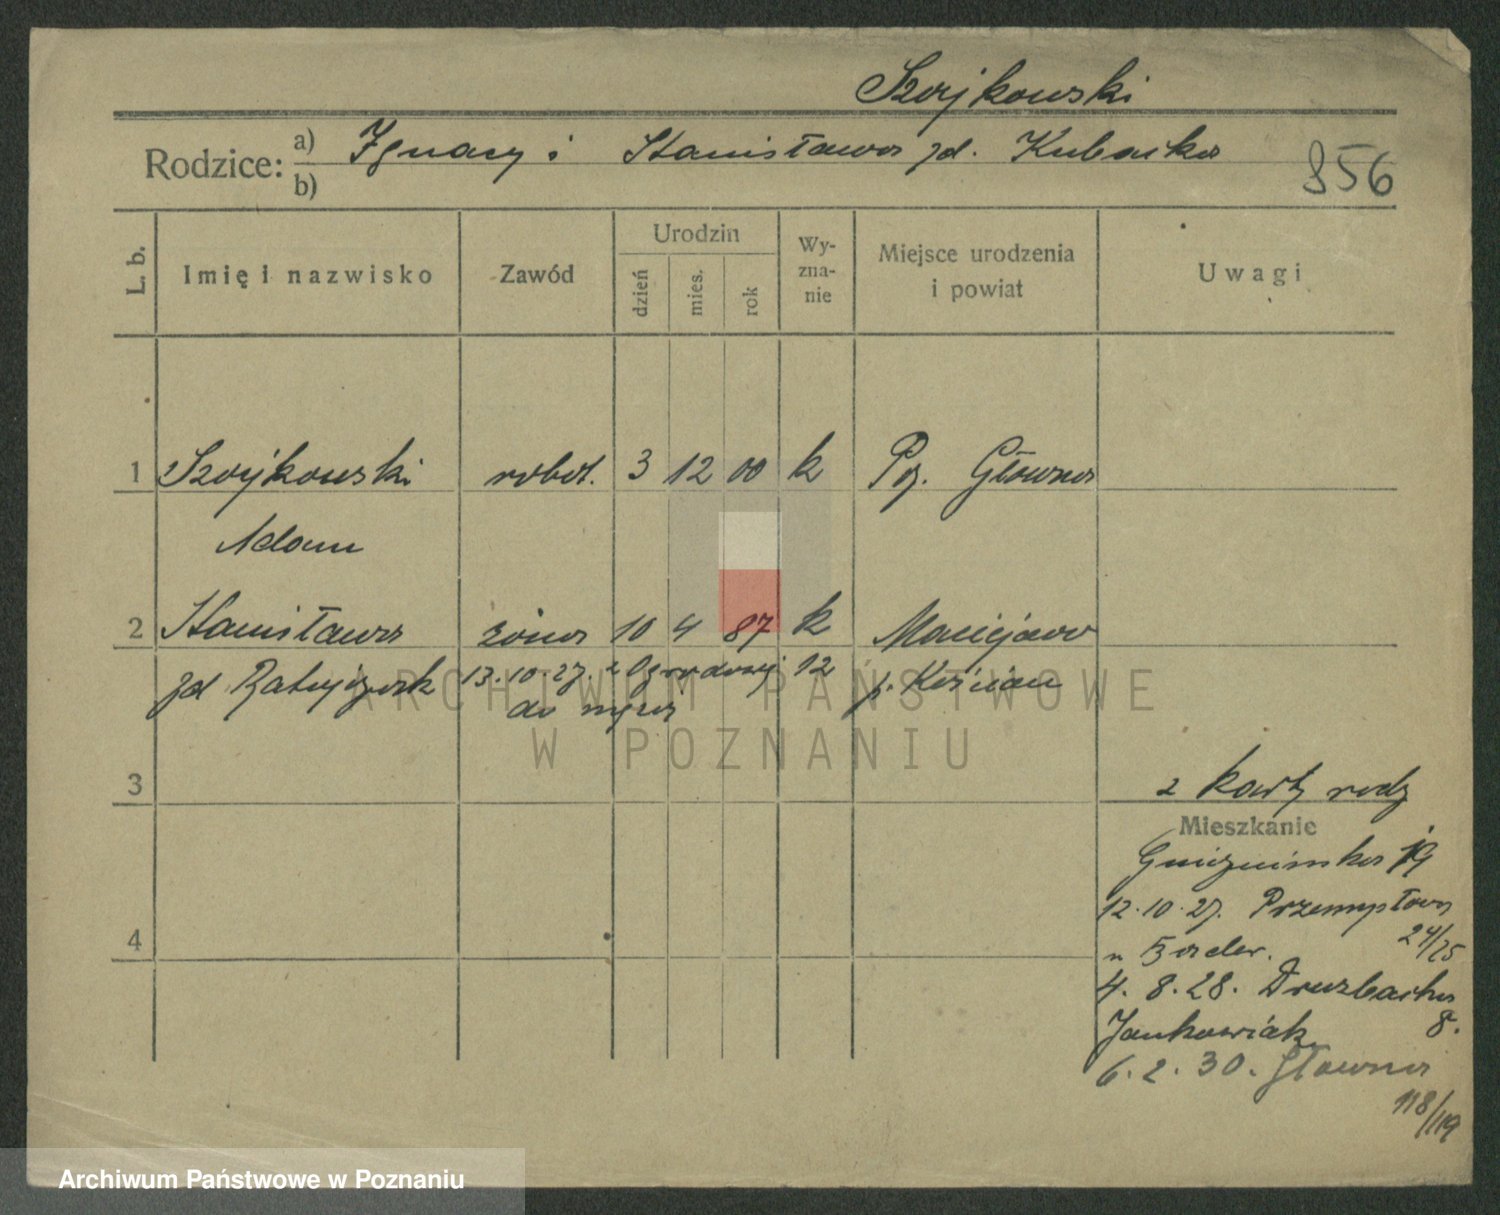 Szojkowski
Rodzice: a) Ignacy i Stanisława zd. Kubacka
b)
856
L. b.
Imię i nazwisko
Zawód
Urodzin
dzień
mies.
rok
Wy-
zna-
nie
Miejsce urodzenia
i powiat
Uwagi
1 Szojkowski robot. 3 12 00 k Pz. Główna
Adam
2 Stanisława żona 10 4 87 k Maciejewo
zd Ratajczak 13.10.27. z Ogrodowej 12 p. Kościan
do męża
3
z karty rodz
Mieszkanie
Gnieźnieńska 19
12.10.27. Przemysłowa
24/25
4
4. 8. 28. Druzbacka
Jankowiak 8.
6. 2. 30. Główna
118/119
ARCHIWUM PAŃSTWOWE
W POZNANIU
Archiwum Państwowe w Poznaniu